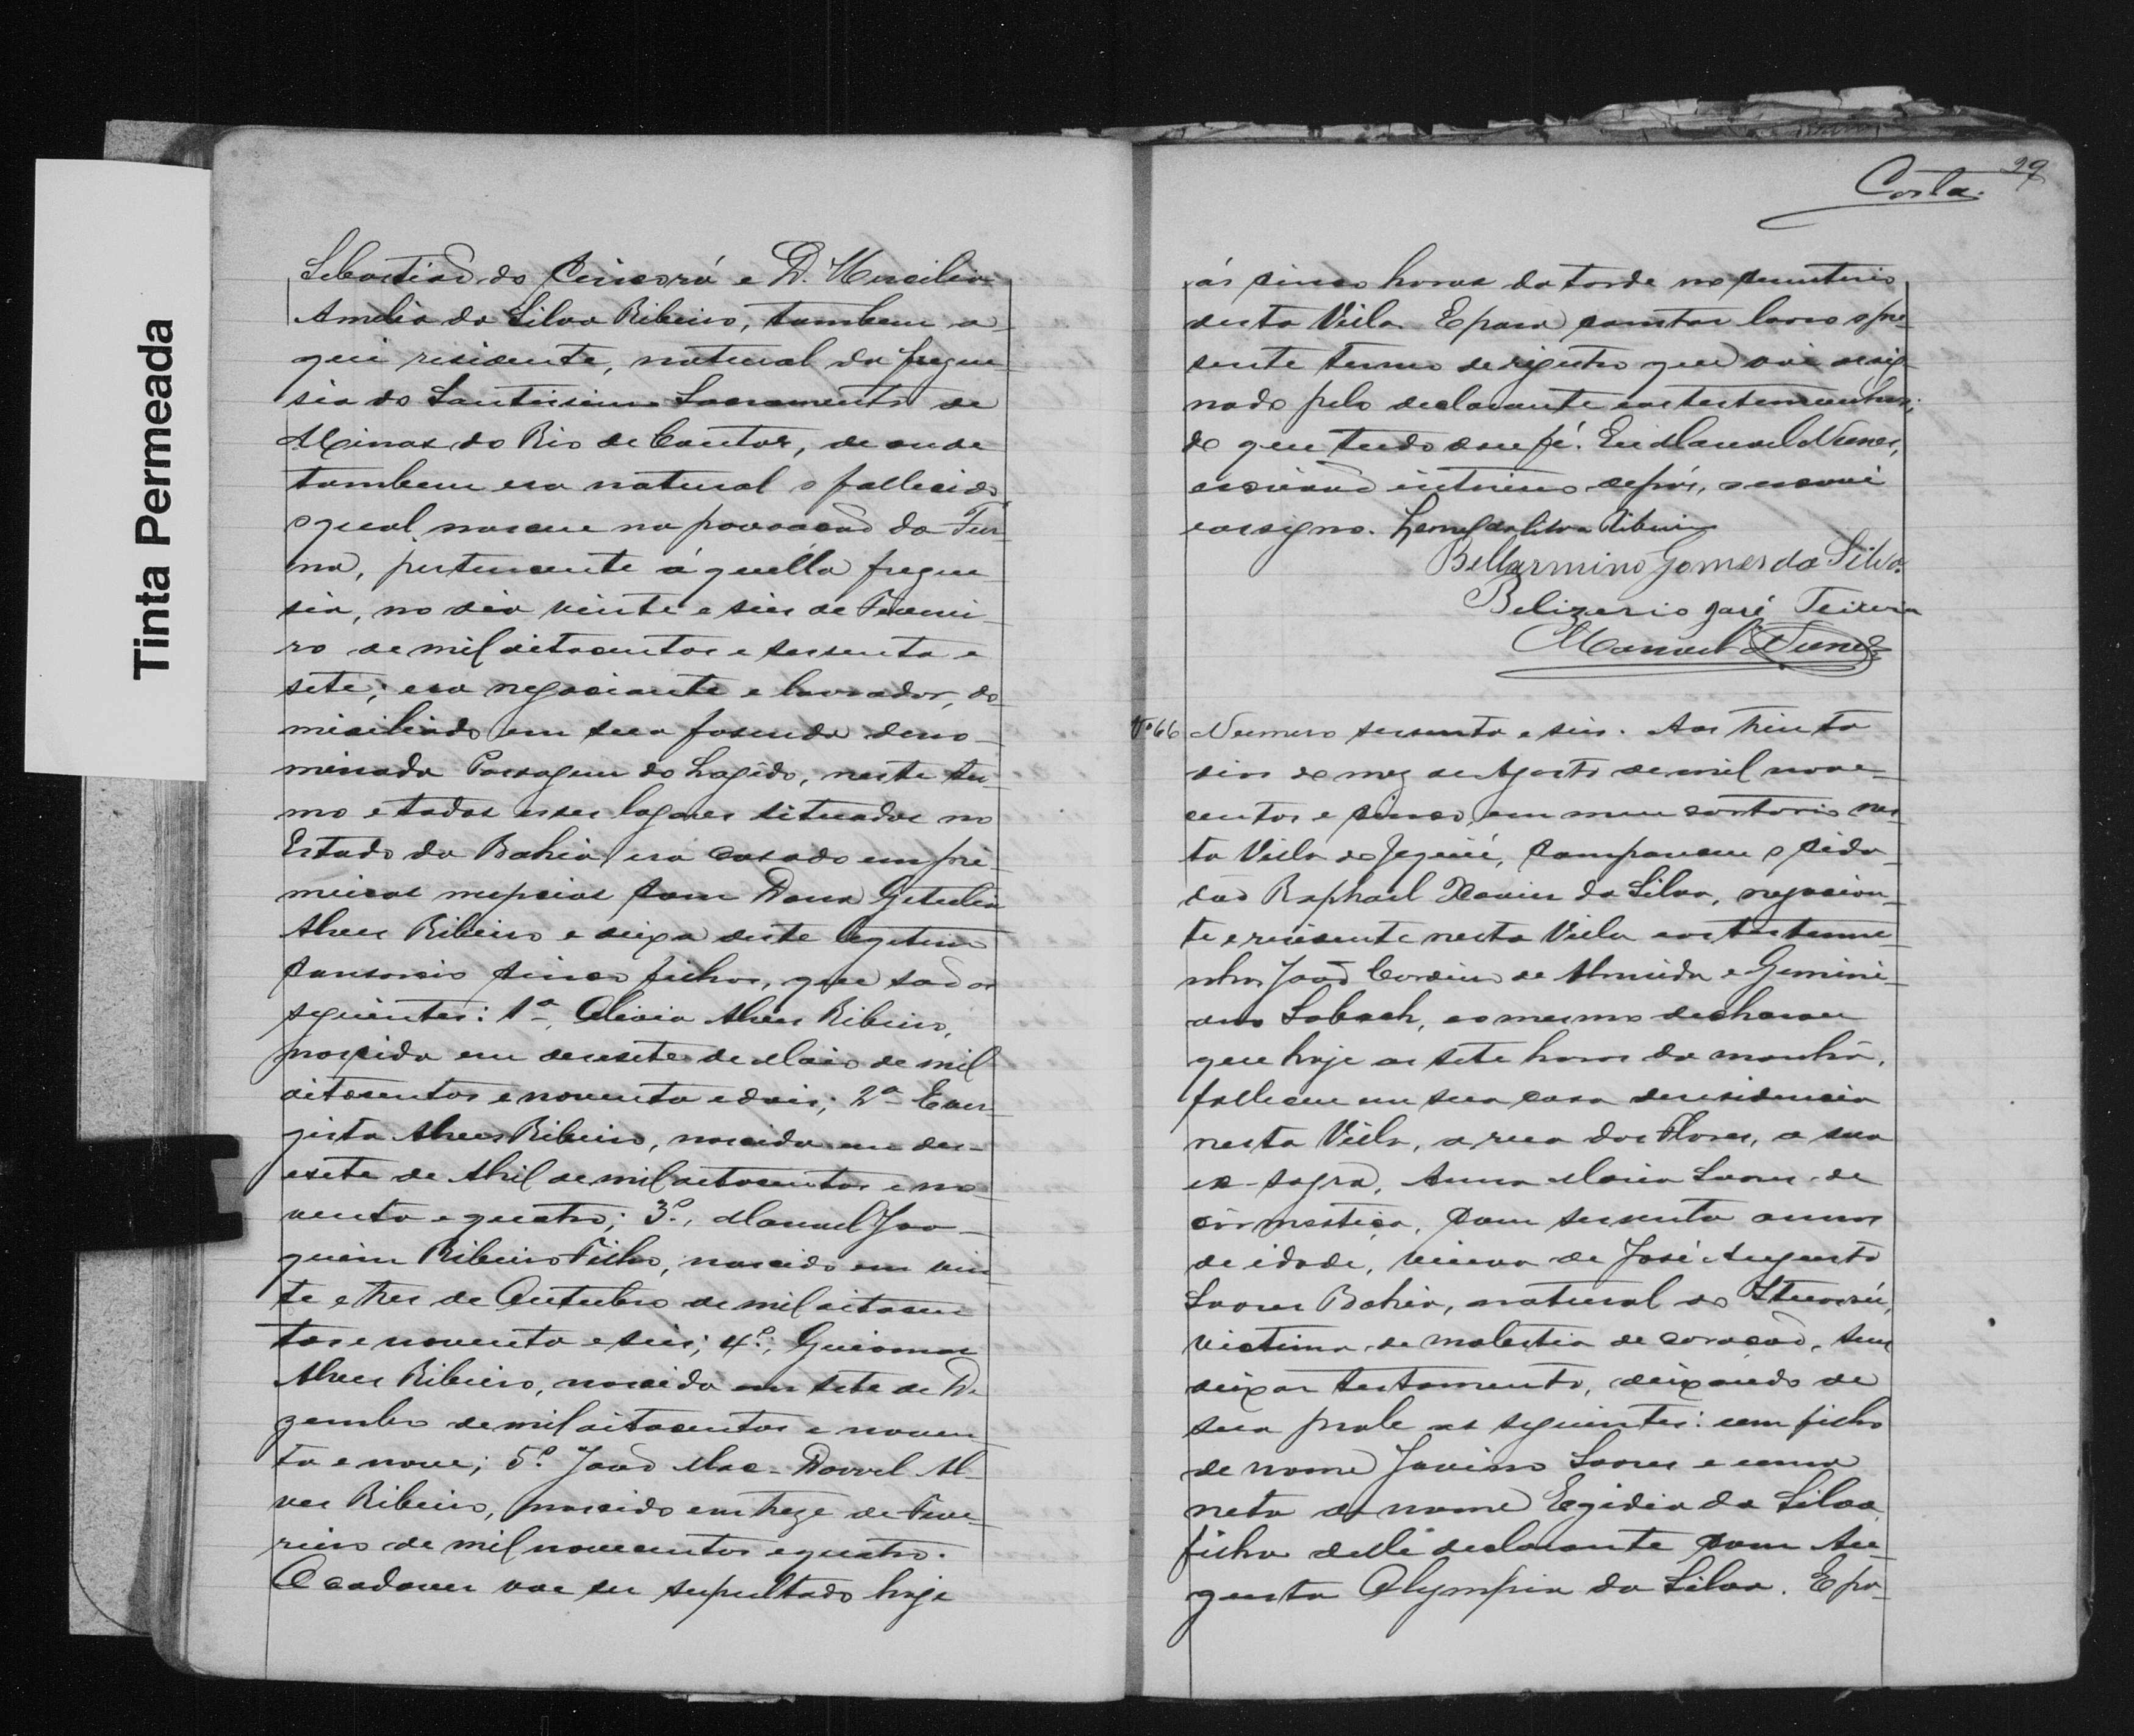 Tinta Permeada
Sebastião do Cincorá e D. Hercilia
Amelia da Silva Ribeiro, tambem a-
qui residente, natural da fregue
sia do Santissimo Sacramento de
Minas do Rio de Contas, de onde
tambem era natural o fallecido,
o qual nasceu na povoação da Fur
na, pertencente áquella fregue
sia, no dia vinte e seis de Feverei-
ro de mil oitocentos e sessenta e
sete; era negociante e lavrador, do
miciliado em sua fasenda deno-
minada Passagem do Lagêdo, neste ter
mo e todos esses lugares situados no
Estado da Bahia, era casado em pri
meiras nupcias com Dona Getulia
Alves Ribeiro e deixa deste legitimo
consorcio cinco filhos, que são os
seguintes: 1ª, Olivia Alves Ribeiro,
nascida em desesete de Maio de mil
oitocentos e noventa e dois; 2ª Ever
gista Alves Ribeiro, nascida em des-
esete de Abril de mil oitocentos e no
venta e quatro; 3º, Manuel Joa-
quim Ribeiro Filho, nascido em vin
te e tres de Outubro de mil oitocen
tos e noventa e seis; 4º, Guiomar
Alves Ribeiro, nascida em sete de De
zembro de mil oitocentos e noven
ta e nove; 5º João Mac-Dowel Al-
ves Ribeiro, nascido em treze de Feve-
reiro de mil novecentos e quatro.
O cadaver vae ser sepultado hoje
Costa. 29
ás cinco horas da tarde no cemiterio
desta Villa. E para constar lavro o pre-
sente termo de registro que vai assig-
nado pelo declarante e as testemunhas;
do que tudo dou fé. Eu Manuel Nunes,
escrivão interino de paz, o escrevi
e assigno. Leonel da Silva Ribeiro
Bellarmino Gomes da Silva.
Belizerio José Teixeira
Manuel Nunes
Nº 66 Numero sessenta e seis. Aos trinta
dias do mez de Agosto de mil nove-
centos e cinco, em meu cartorio nes
ta Villa de Jequié, compareceu o cida-
dão Raphael Xavier da Silva, negocian-
te e residente nesta Villa e as testemu-
nhas João Cordeiro de Almeida e Gemini-
ano Saback, e o mesmo declarou
que hoje as sete horas da manhã,
falleceu em sua casa de residencia
nesta Villa, a rua das Flores, a sua
ex-sogra, Anna Maria Soares de
côr mestiça, com sessenta annos
de idade, viuva de José Augusto
Soares Bahia, natural do Ituassú,
victima de molestia de coração, sem
deixar testamento, deixando de
sua prole os seguintes: um filho
de nome Jovino Soares e uma
neta de nome Egidia da Silva
filha delle declarante com Au-
gusta Olympia da Silva. E pa-